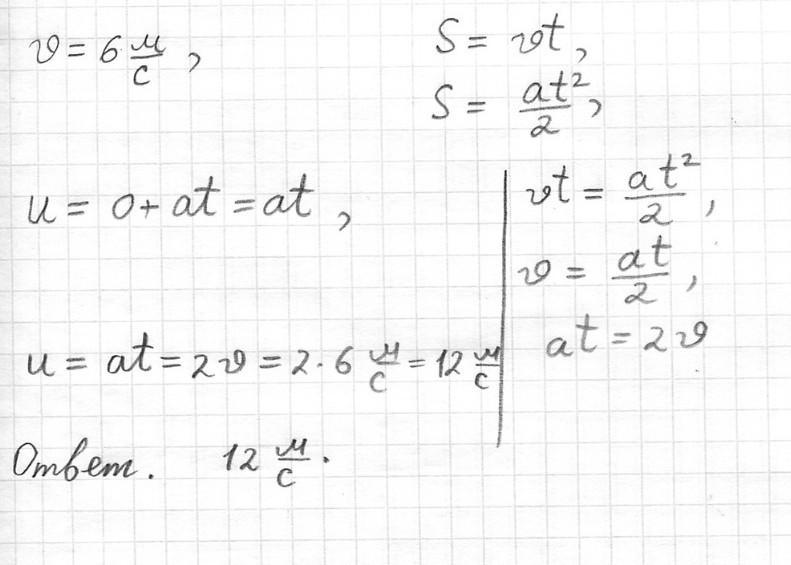 υ = 6 м/с ,
S = υt,
S = at²/2,
u = 0 + at = at ,
υt = at²/2,
υ = at/2,
at = 2υ
u = at = 2υ = 2 · 6 м/с = 12 м/с
Ответ. 12 м/с.